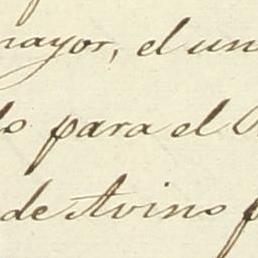 mayor, el un
para el
de Avino